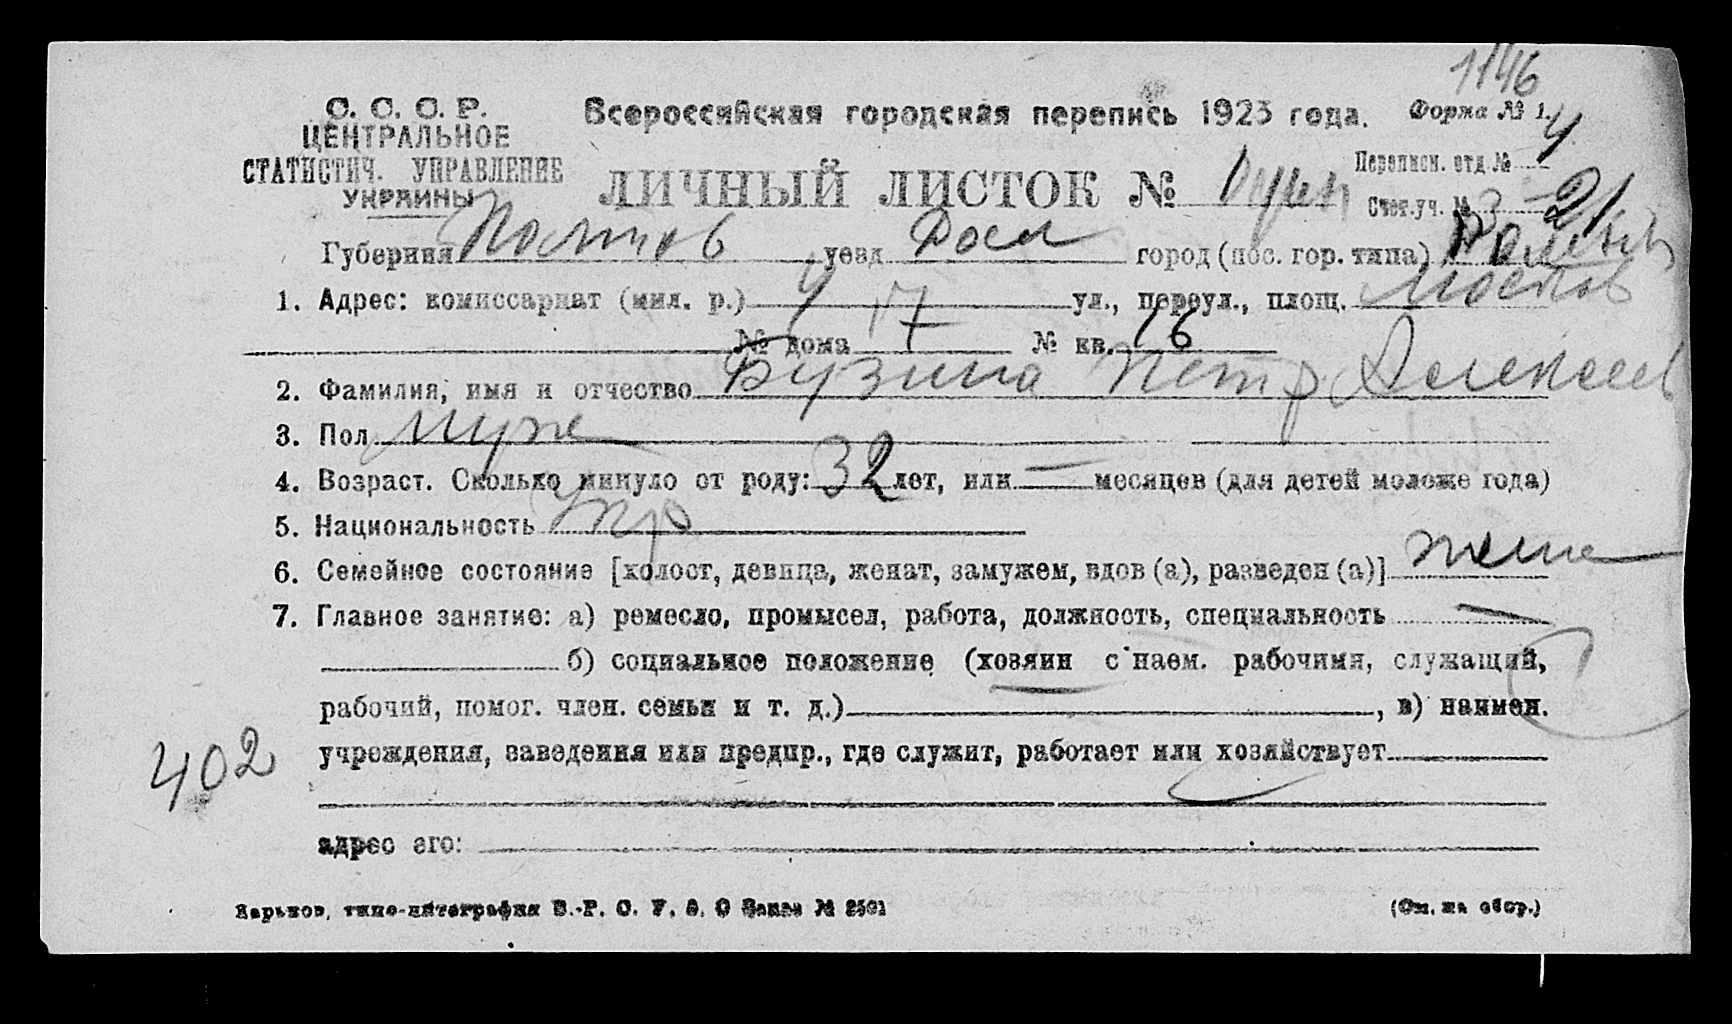 1146
С. С. С. Р.
ЦЕНТРАЛЬНОЕ
СТАТИСТИЧ. УПРАВЛЕНИЕ
УКРАИНЫ
Всероссийская городская перепись 1923 года.
Форма № 1.
ЛИЧНЫЙ ЛИСТОК №
Переписн. отд № 4
Счет.уч. № 3-21
Губерния Полтов уезд город (пос. гор. типа)
1. Адрес: комиссариат (мил. р.) ул., переул., площ. Москов
№ дома 17 № кв. 16
2. Фамилия, имя и отчество Бузина Петр Алексеев
3. Пол муж
4. Возраст. Сколько минуло от роду: 32 лет, или — месяцев (для детей моложе года)
5. Национальность Укр
6. Семейное состояние [холост, девица, женат, замужем, вдов (а), разведен (а)]
7. Главное занятие: а) ремесло, промысел, работа, должность, специальность —
б) социальное положение (хозяин с наем. рабочими, служащий,
рабочий, помог. член. семьи и т. д.) , в) наимен.
учреждения, заведения или предпр., где служит, работает или хозяйствует
402
адрес его:
Харьков, типо-литография В.-Р. С. У. З. О Заказ № 2501
(См. на обор.)